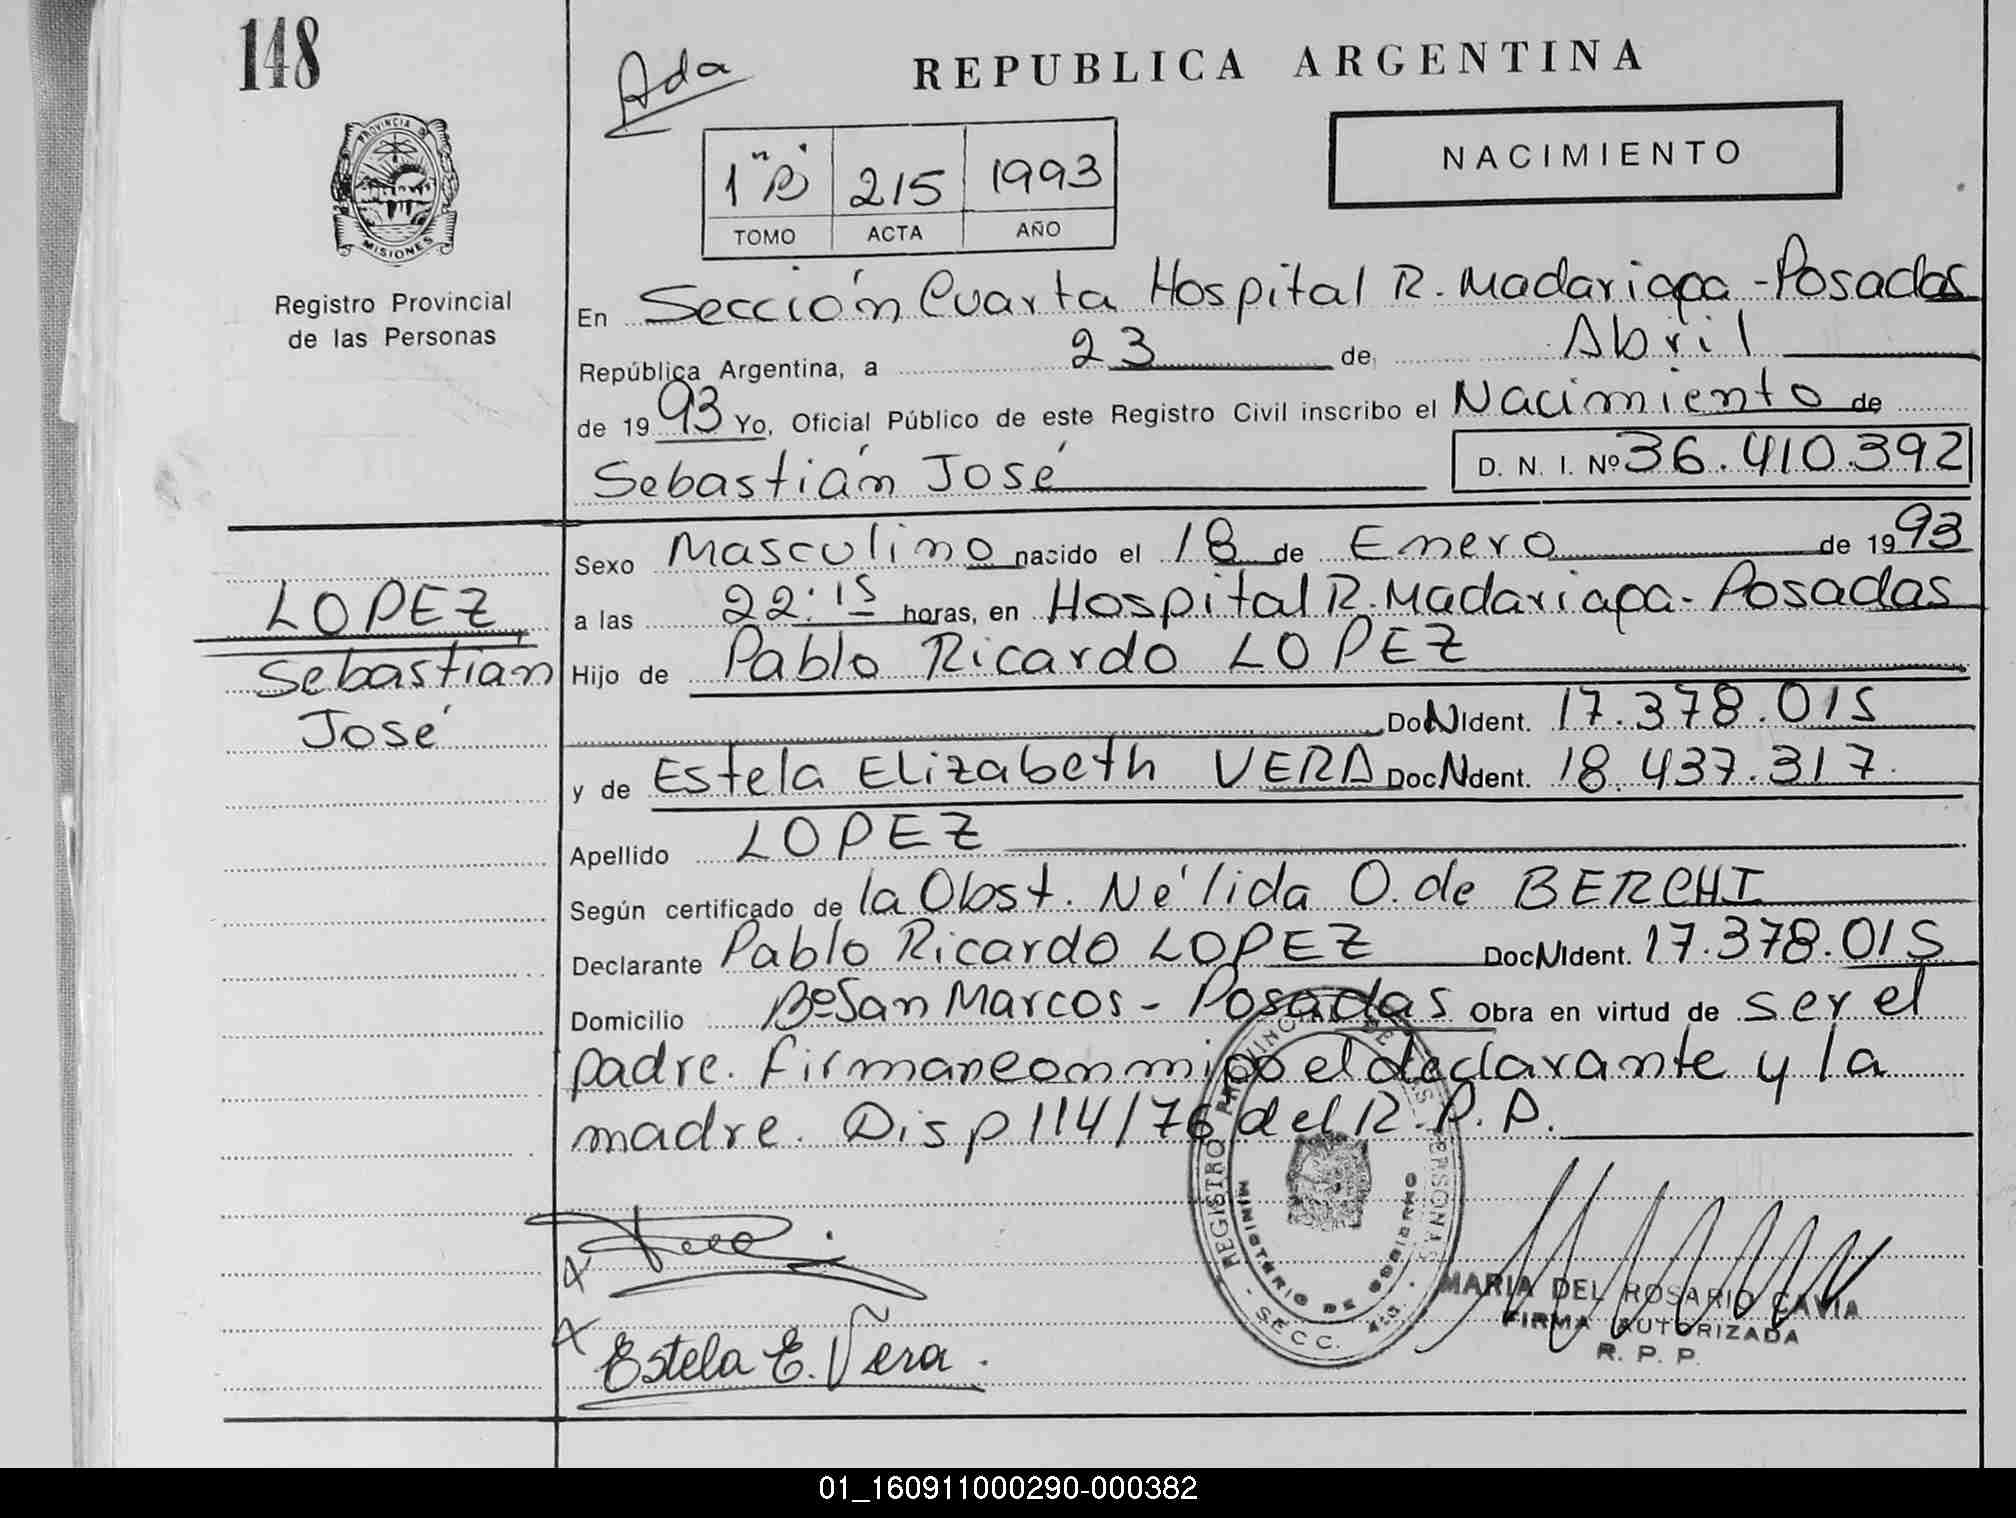 148
Ada
REPUBLICA ARGENTINA
NACIMIENTO
1 "B" 215 1993
TOMO ACTA AÑO
PROVINCIA DE
MISIONES
Registro Provincial
de las Personas
En Sección Cuarta Hospital R. Madariaga - Posadas
República Argentina, a 23 de Abril
de 19 93 Yo, Oficial Público de este Registro Civil inscribo el Nacimiento de
Sebastián José D. N. I. Nº 36.410.392
Sexo Masculino nacido el 18 de Enero de 19 93
a las 22:15 horas, en Hospital R. Madariaga - Posadas
LOPEZ
Sebastián
José
Hijo de Pablo Ricardo LOPEZ
DocNIdent. 17.378.015
y de Estela Elizabeth VERA DocNdent. 18.437.317.
Apellido LOPEZ
Según certificado de la Obst. Nélida O. de BERCHI
Declarante Pablo Ricardo LOPEZ DocNIdent. 17.378.015
Domicilio Bº San Marcos - Posadas Obra en virtud de ser el
padre. Firman conmigo el declarante y la
madre. Disp 114/76 del R.P.P.
REGISTRO PROVINCIAL DE LAS PERSONAS
MINISTERIO DE GOBIERNO
- SECC. 4ta. -
Estela E. Vera.
MARIA DEL ROSARIO CAVIA
FIRMA AUTORIZADA
R. P. P.
01_160911000290-000382